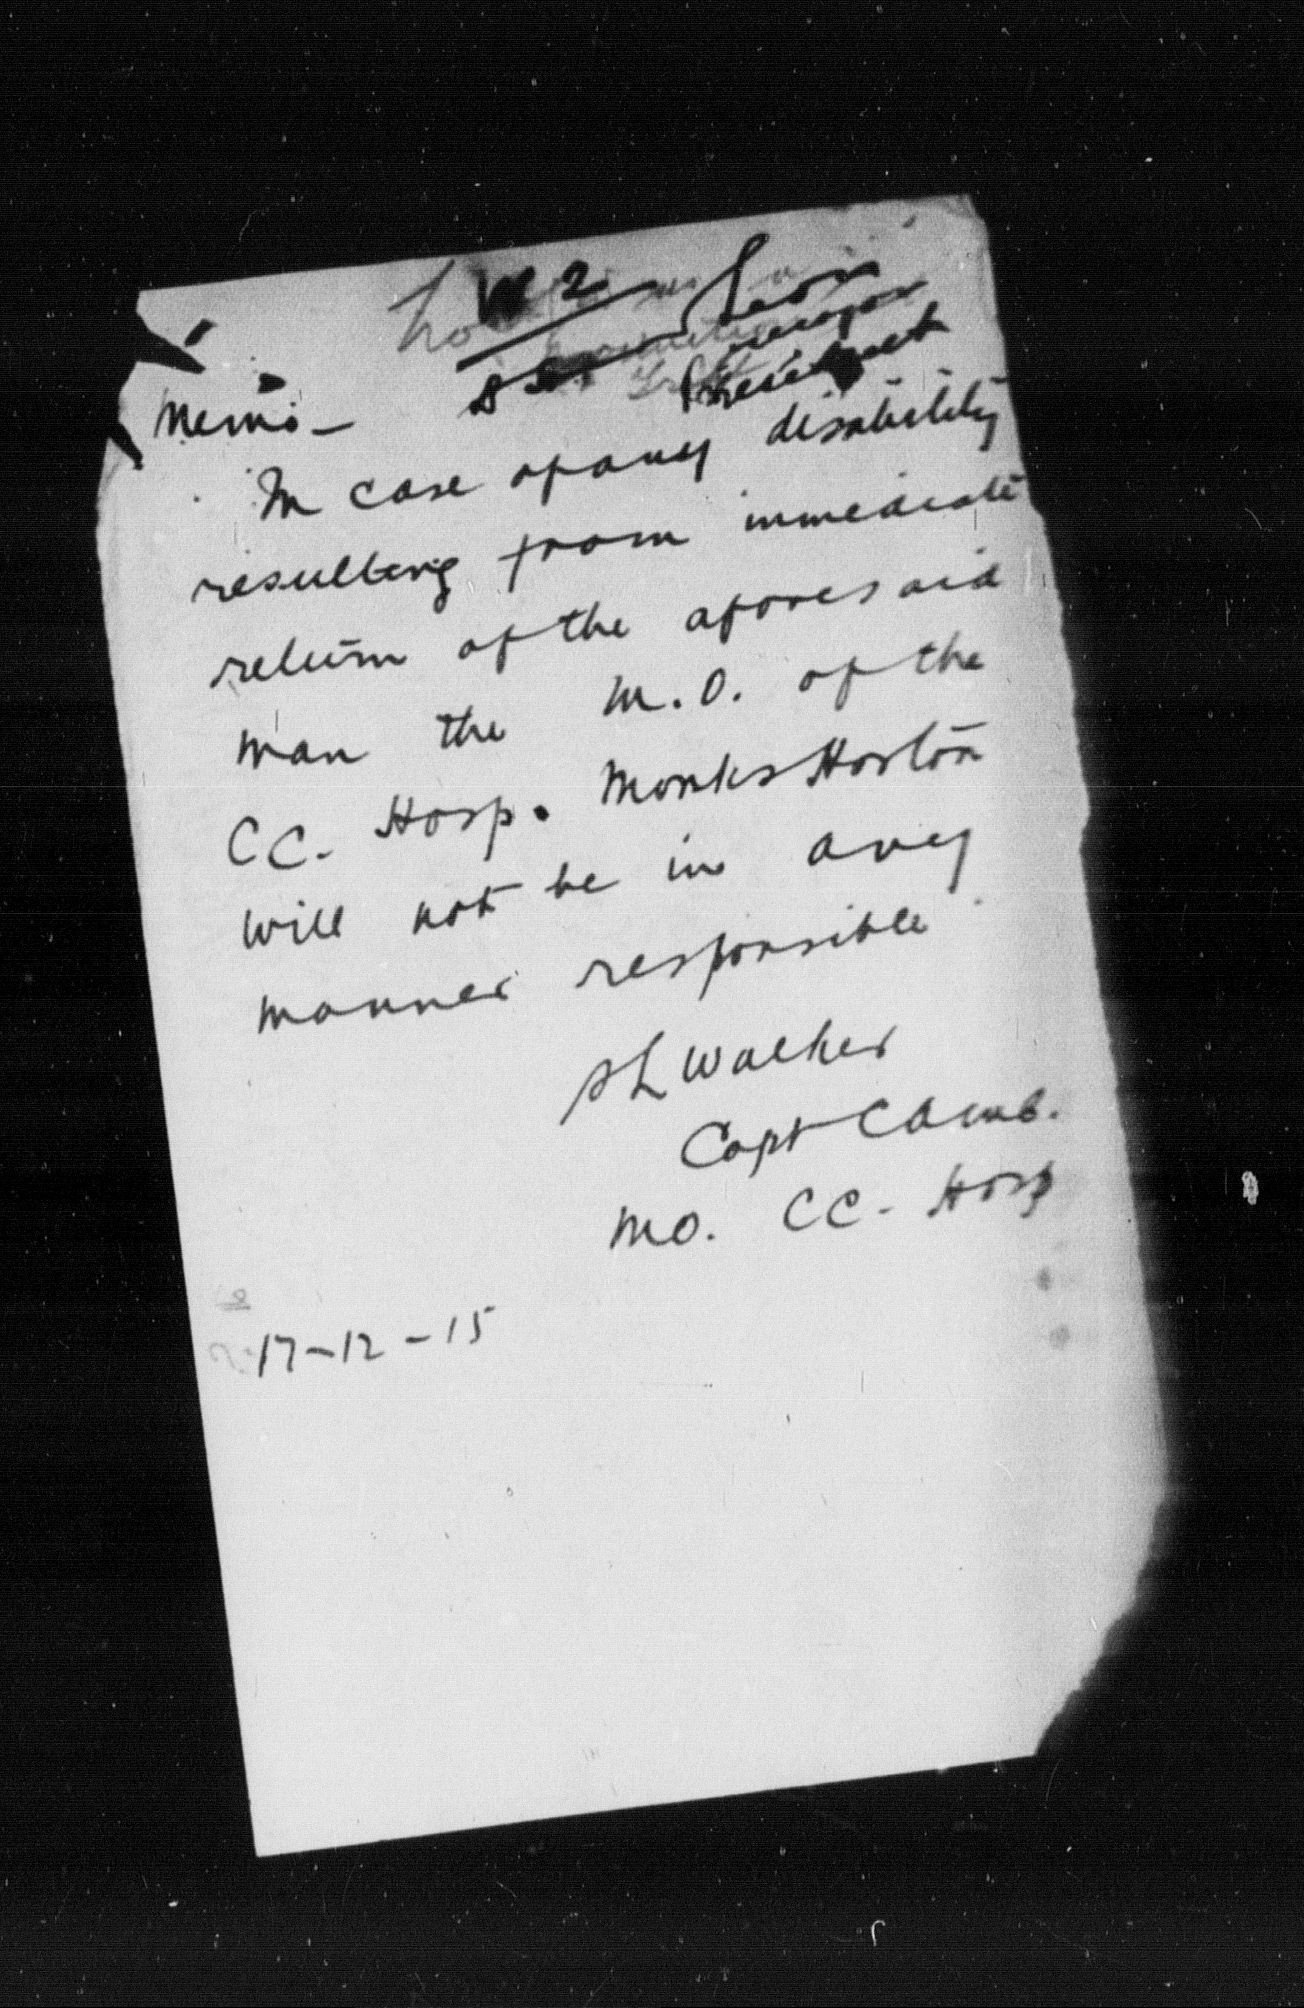 No 2
President
Memo -
In case of any disability
resulting from immediate
return of the aforesaid
man the M.O. of the
CC. Hosp. Monks Horton
will not be in any
manner responsible
SL Walker
Capt CAMC.
MO. CC - Hosp
17-12-15